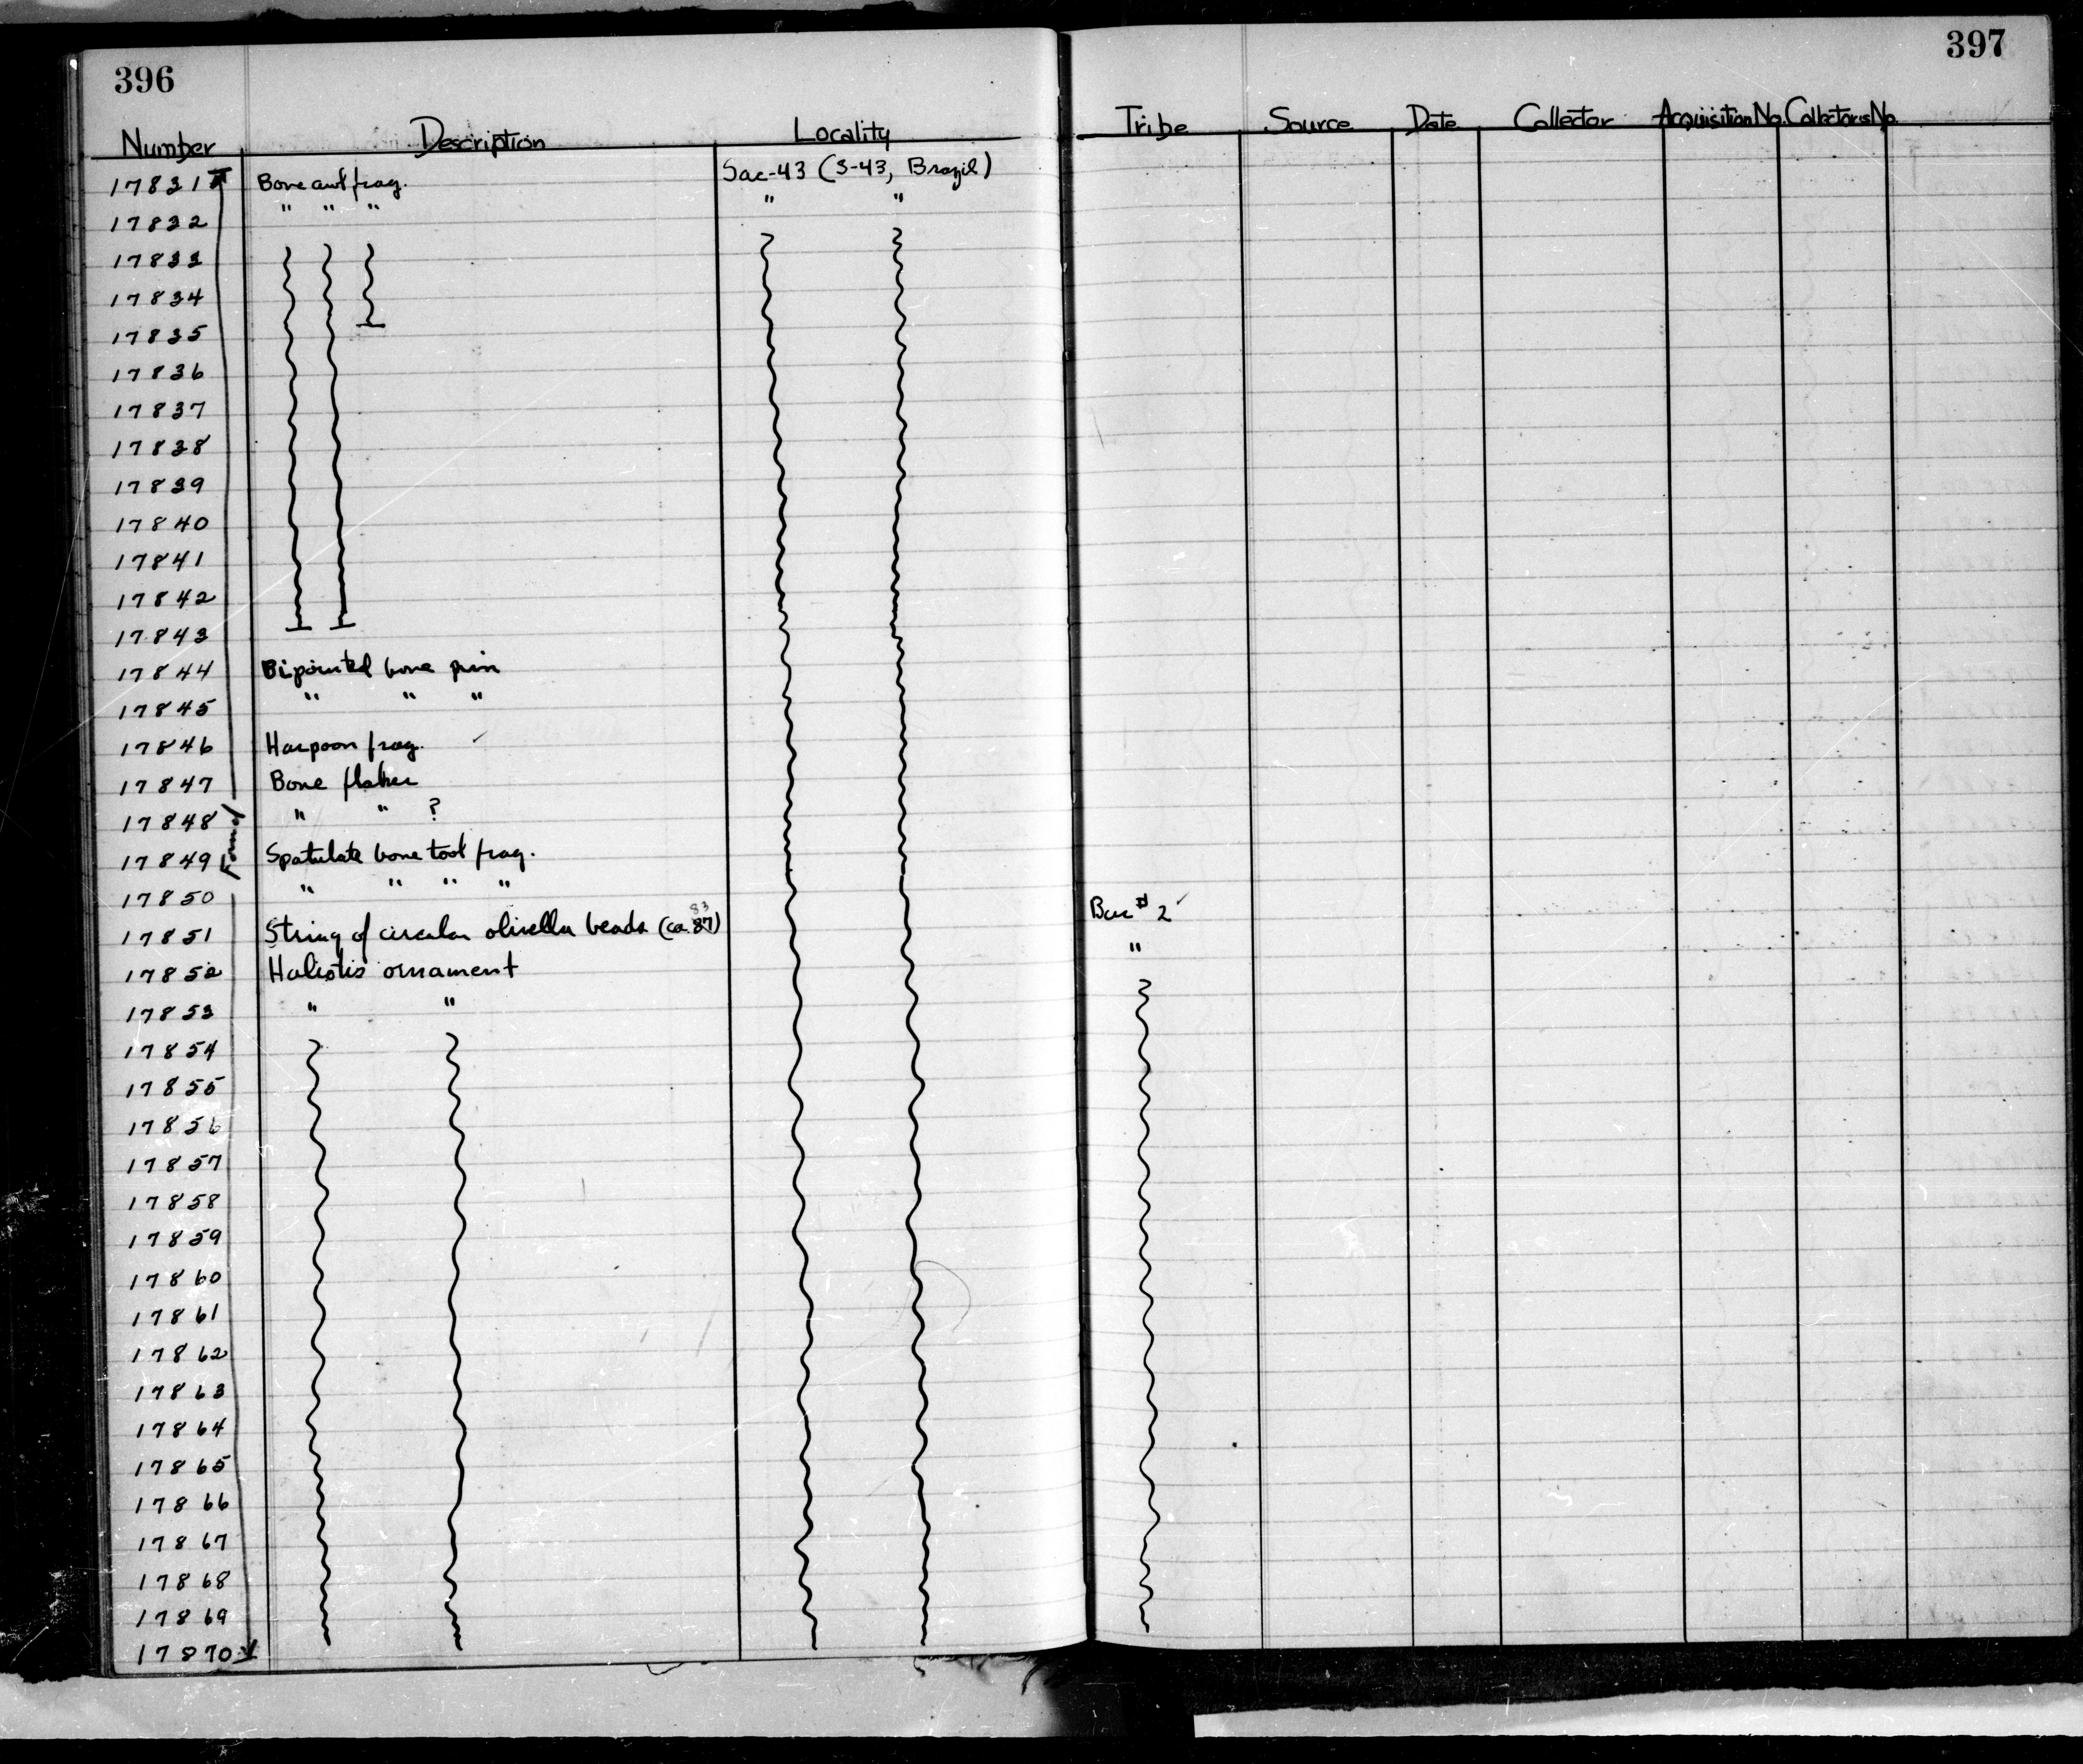 396
397
Number Description Locality Tribe Source Date Collector Acquisition No. Collectors No.
17831 Bone awl frag. Sac-43 (S-43, Brazil)
17832 " " " " "
17833
17834
17835
17836
17837
17838
17839
17840
17841
17842
17843
17844 Bipointed bone pin
17845 " " "
17846 Harpoon frag. ✓
17847 Bone flaker
17848 " " ?
17849 Spatulate bone tool frag.
17850 " " " "
Found
83
17851 String of circular olivella beads (ca. 87) Bur # 2 ✓
17852 Haliotis ornament "
17853 " "
17854
17855
17856
17857
17858
17859
17860
17861
17862
17863
17864
17865
17866
17867
17868
17869
17870